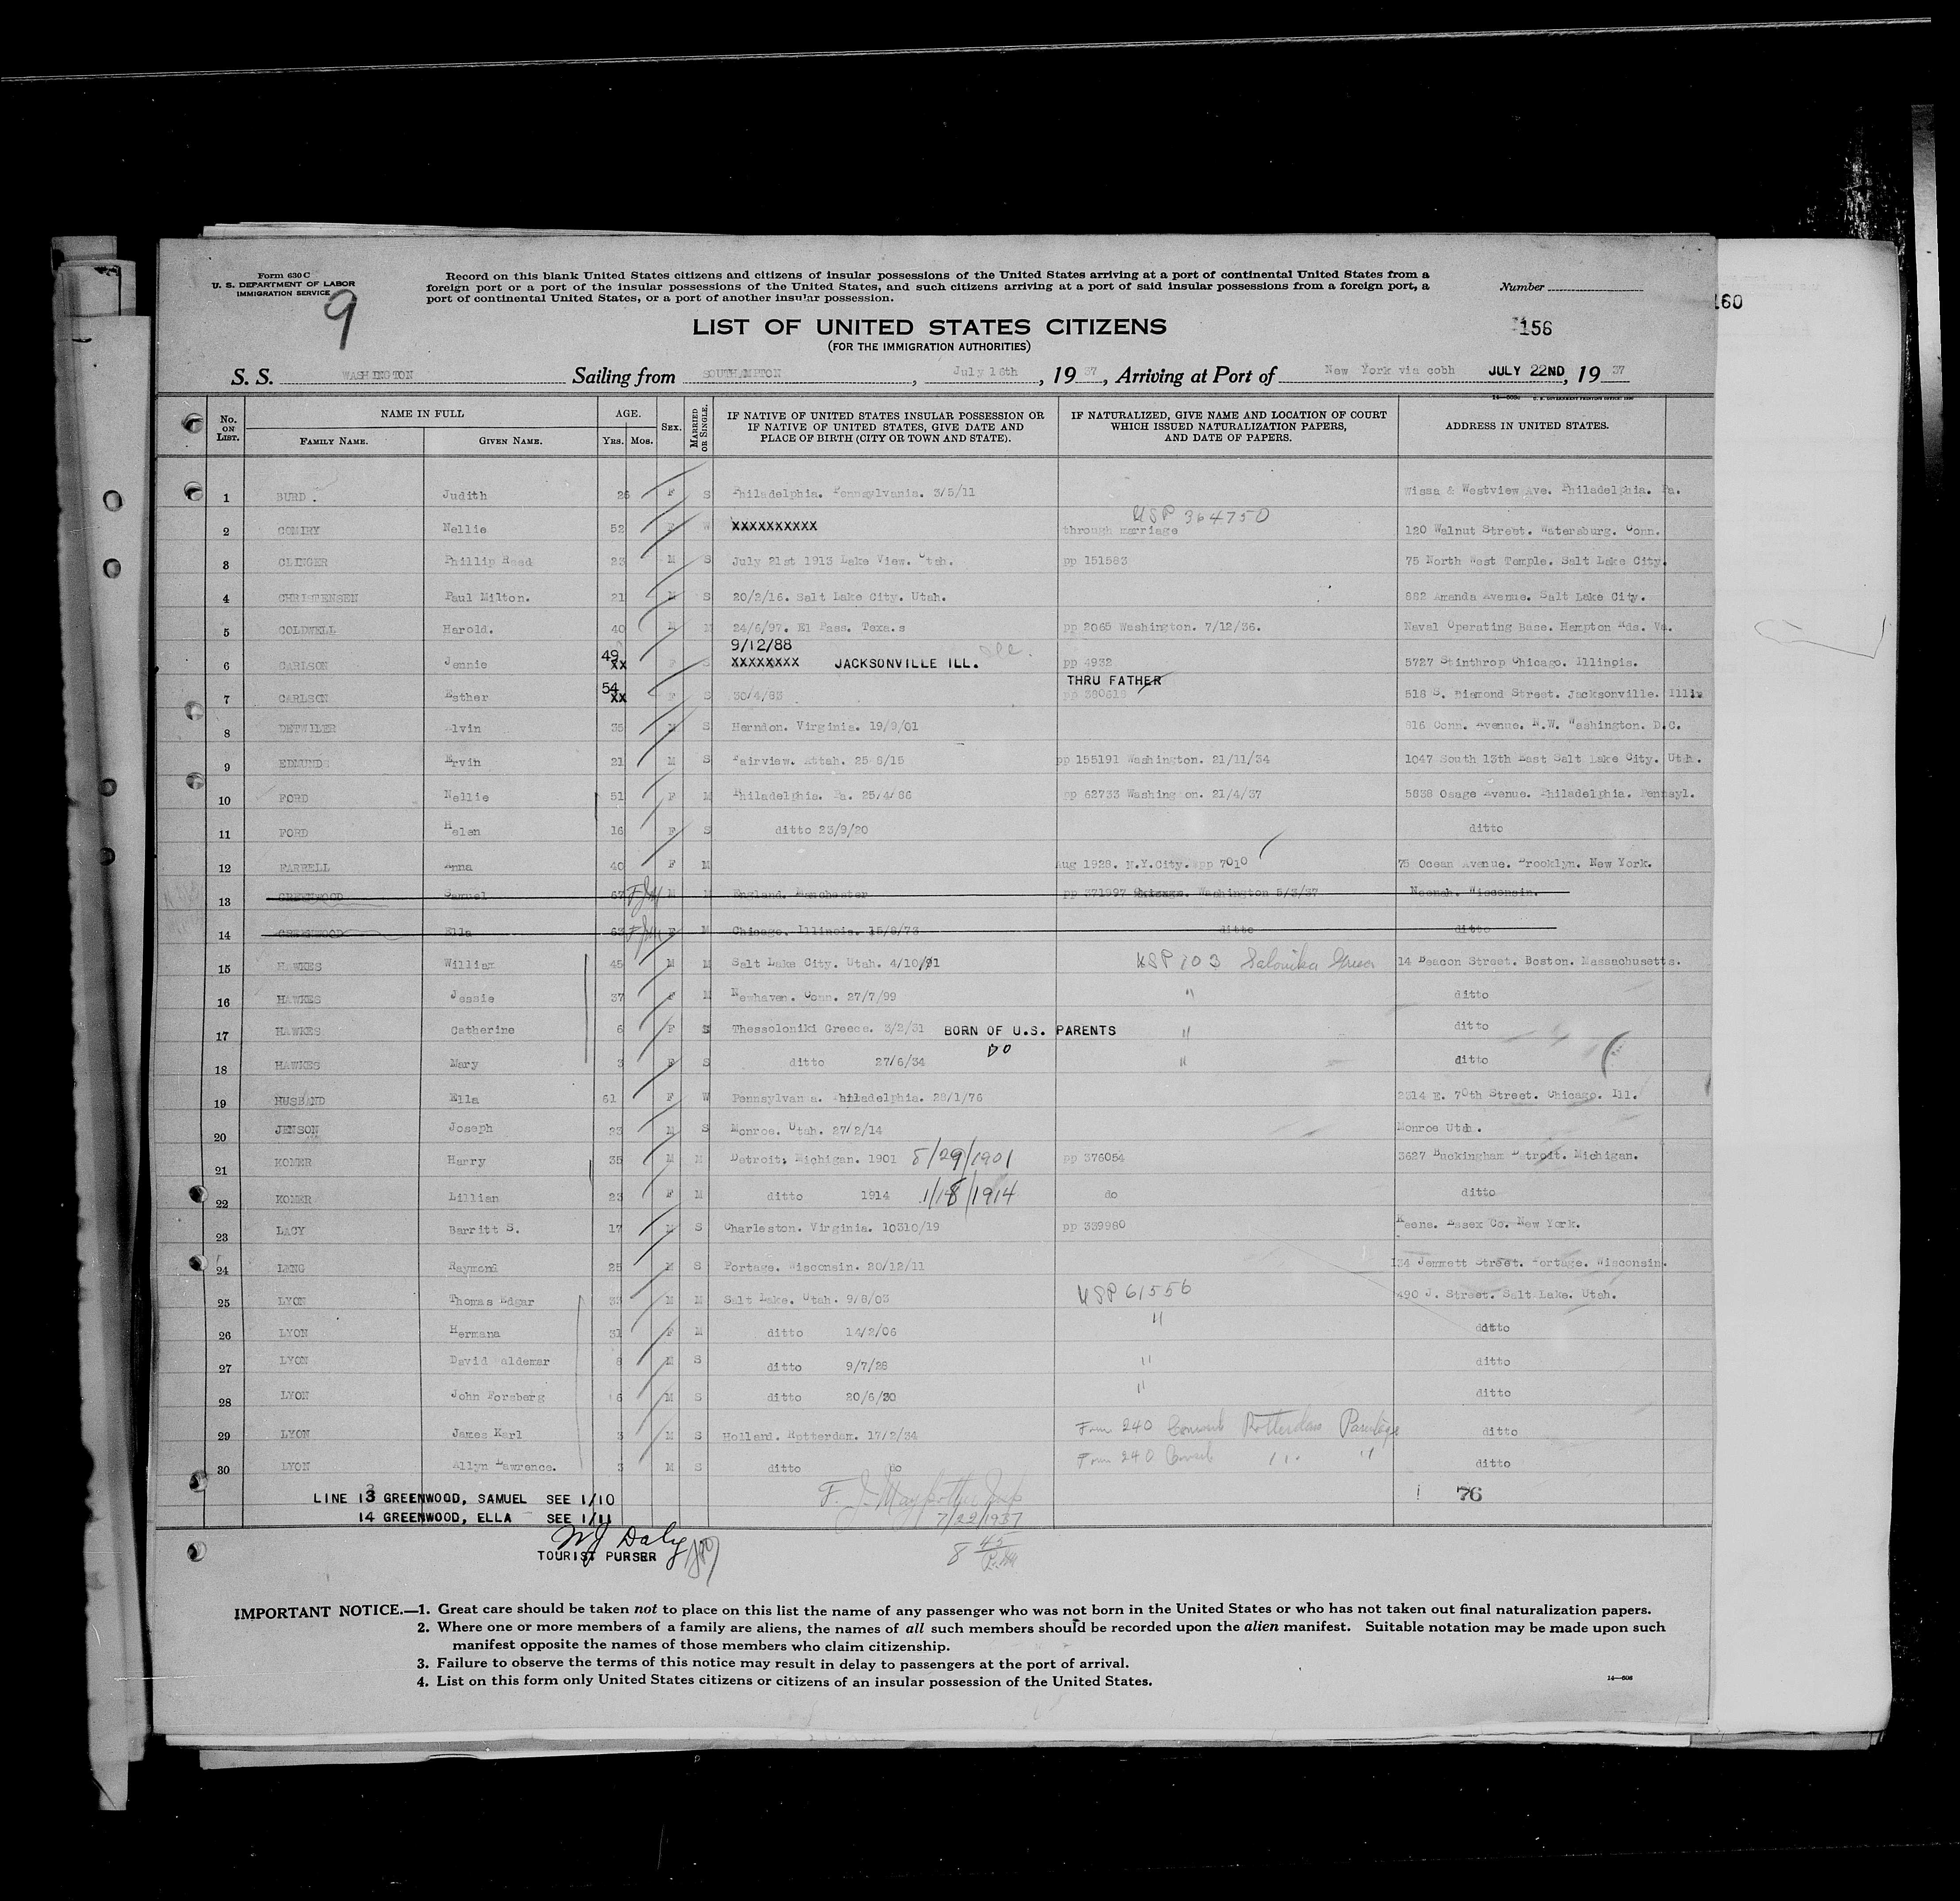 Form 630 C
U. S. DEPARTMENT OF LABOR
IMMIGRATION SERVICE
9
Record on this blank United States citizens and citizens of insular possessions of the United States arriving at a port of continental United States from a
foreign port or a port of the insular possessions of the United States, and such citizens arriving at a port of said insular possessions from a foreign port, a
port of continental United States, or a port of another insular possession.
Number
160
156
LIST OF UNITED STATES CITIZENS
(FOR THE IMMIGRATION AUTHORITIES)
S. S. WASHINGTON Sailing from SOUTHAMPTON, July 16th, 19 37, Arriving at Port of New York via cobh JULY 22ND, 19 37
No. ON LIST. NAME IN FULL FAMILY NAME. GIVEN NAME. AGE. YRS. MOS. SEX. MARRIED OR SINGLE. IF NATIVE OF UNITED STATES INSULAR POSSESSION OR IF NATIVE OF UNITED STATES, GIVE DATE AND PLACE OF BIRTH (CITY OR TOWN AND STATE). IF NATURALIZED, GIVE NAME AND LOCATION OF COURT WHICH ISSUED NATURALIZATION PAPERS, AND DATE OF PAPERS. ADDRESS IN UNITED STATES.
1 BURD. Judith 26 F S Philadelphia. Pennsylvania. 3/5/11 Wissa & Westview Ave. Philadelphia. Pa.
2 COMIRY Nellie 52 F W XXXXXXXXXX through marriage USP 364750 120 Walnut Street. Watersburg. Conn.
3 CLINGER Phillip Read 23 M S July 21st 1913 Lake View. Utah. pp 151583 75 North West Temple. Salt Lake City.
4 CHRISTENSEN Paul Milton. 21 M S 20/2/16. Salt Lake City. Utah. 882 Amanda Avenue. Salt Lake City.
5 COLDWELL Harold. 40 M M 24/6/97. El Pass. Texa.s pp 2065 Washington. 7/12/36. Naval Operating Base. Hampton Rds. Va.
6 CARLSON Jennie 49 XX S 9/12/88 XXXXXXXX JACKSONVILLE ILL. pp 4932 5727 Stinthrop Chicago. Illinois.
7 CARLSON Esther 54 XX F S 30/4/83 THRU FATHER pp 380618 518 S. Diamond Street. Jacksonville. Illin
8 DETWILER Alvin 35 M S Herndon. Virginia. 19/9/01 816 Conn. Avenue. N.W. Washington. D.C.
9 EDMUNDS Ervin 21 M S Fairview. Uttah. 25 8/15 pp 155191 Washington. 21/11/34 1047 South 13th East Salt Lake City. Utah.
10 FORD Nellie 51 F M Philadelphia. Pa. 25/4/86 pp 62733 Washington. 21/4/37 5838 Osage Avenue. Philadelphia. Pennsyl.
11 FORD Helen 16 F S ditto 23/9/20 ditto
12 FARRELL Anna 40 F M Aug 1928. N.Y.City. pp 7010 75 Ocean Avenue. Brooklyn. New York.
13 GREENWOOD Samuel 67 M M England. Manchester pp 371997 Washington 5/3/37 Neenah. Wisconsin.
14 GREENWOOD Ella 63 F M Chicago. Illinois. 15/8/73 ditto ditto
15 HAWKES William 45 M M Salt Lake City. Utah. 4/10/91 USP 103 Salonika Greece 14 Beacon Street. Boston. Massachusetts.
16 HAWKES Jessie 37 F M Newhaven. Conn. 27/7/99 " ditto
17 HAWKES Catherine 6 F S Thessoloniki Greece. 3/2/31 BORN OF U.S. PARENTS " ditto
18 HAWKES Mary 3 F S ditto 27/6/34 DO " ditto
19 HUSBAND Ella 61 F W Pennsylvania. Philadelphia. 28/1/76 2314 E. 70th Street. Chicago. Ill.
20 JENSON Joseph 23 M S Monroe. Utah. 27/2/14 Monroe Utah.
21 KOMER Harry 35 M M Detroit; Michigan. 1901 8/29/1901 pp 376054 3627 Buckingham Detroit. Michigan.
22 KOMER Lillian 23 F M ditto 1914 1/18/1914 do ditto
23 LACY Barritt S. 17 M S Charleston. Virginia. 10310/19 pp 339980 Keene. Essex Co. New York.
24 LENG Raymond 25 M S Portage. Wisconsin. 20/12/11 134 Jemmett Street. Portage. Wisconsin.
25 LYON Thomas Edgar 33 M M Salt Lake. Utah. 9/8/03 USP 61556 490 J. Street. Salt Lake. Utah.
26 LYON Hermana 31 F M ditto 14/2/06 " ditto
27 LYON David aldemar 8 M S ditto 9/7/28 " ditto
28 LYON John Forsberg 6 M S ditto 20/6/30 " ditto
29 LYON James Karl 3 M S Holland. Rotterdam. 17/2/34 Form 240 Consul Rotterdam ditto
30 LYON Allyn Lawrence. 3 M S ditto do Form 240 Consul " " ditto
LINE 13 GREENWOOD, SAMUEL SEE 1/10
14 GREENWOOD, ELLA SEE 1/11
76
7/22/1937
8 45 P.M
WJ Daly
TOURIST PURSER
IMPORTANT NOTICE.—1. Great care should be taken not to place on this list the name of any passenger who was not born in the United States or who has not taken out final naturalization papers.
2. Where one or more members of a family are aliens, the names of all such members should be recorded upon the alien manifest. Suitable notation may be made upon such
manifest opposite the names of those members who claim citizenship.
3. Failure to observe the terms of this notice may result in delay to passengers at the port of arrival.
4. List on this form only United States citizens or citizens of an insular possession of the United States.
14—608